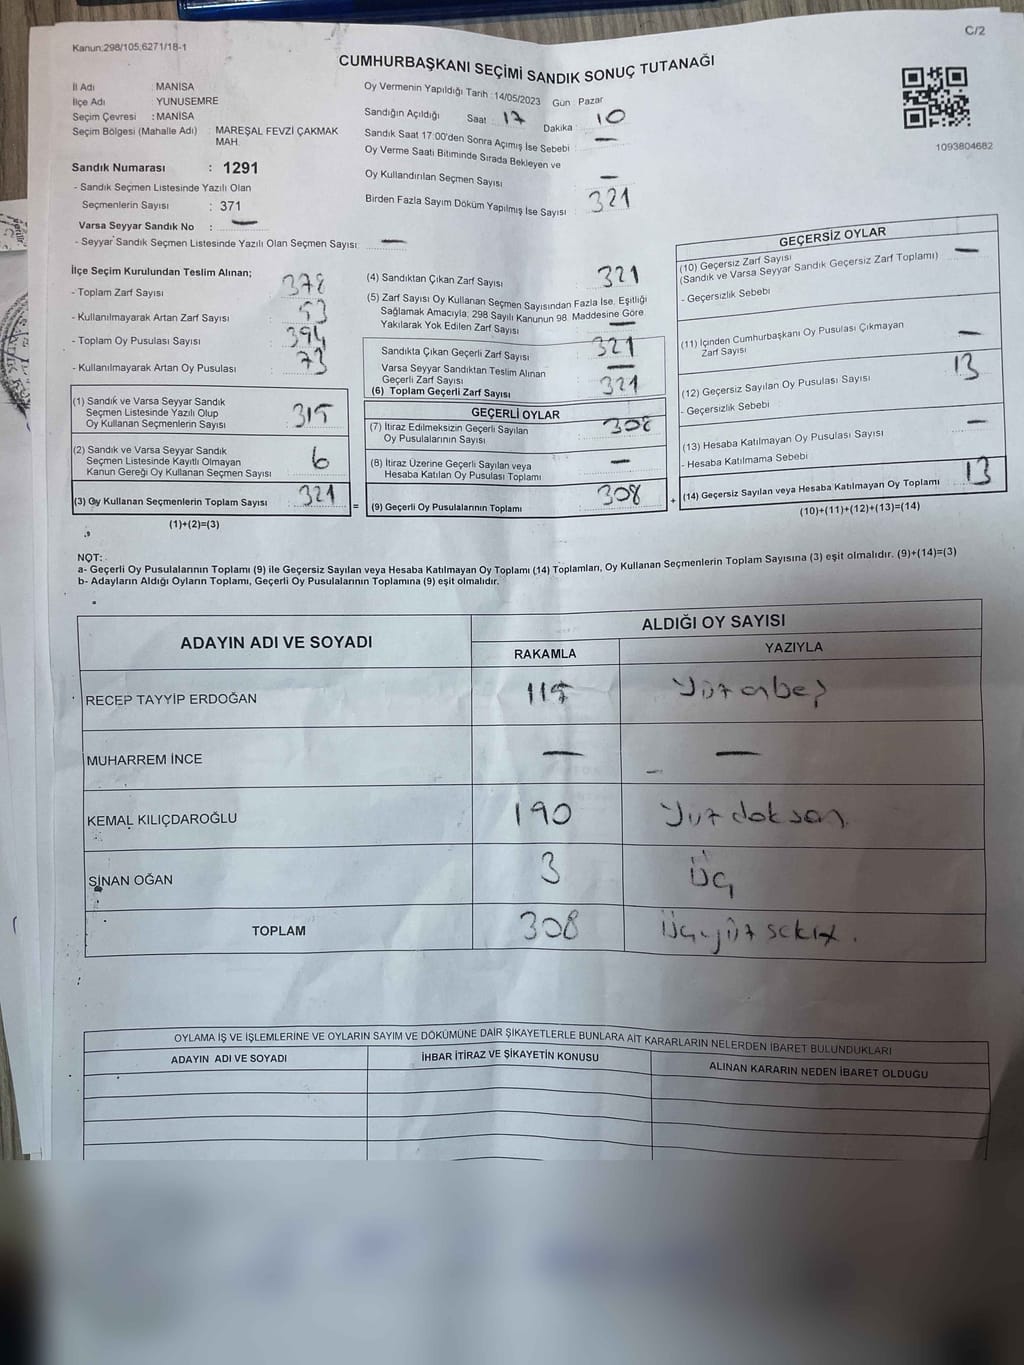 C/2
Kanun:298/105,6271/18-1
CUMHURBAŞKANI SEÇİMİ SANDIK SONUÇ TUTANAĞI
İl Adı : MANİSA
İlçe Adı YUNUSEMRE
Seçim Çevresi : MANİSA
Seçim Bölgesi (Mahalle Adı) : MAREŞAL FEVZİ ÇAKMAK MAH.
Sandık Numarası : 1291
- Sandık Seçmen Listesinde Yazılı Olan
Seçmenlerin Sayısı : 371
Varsa Seyyar Sandık No : —
- Seyyar Sandık Seçmen Listesinde Yazılı Olan Seçmen Sayısı : —
Oy Vermenin Yapıldığı Tarih : 14/05/2023 Gün : Pazar
Sandığın Açıldığı Saat : 17 Dakika : 10
Sandık Saat 17:00'den Sonra Açmış İse Sebebi : —
Oy Verme Saati Bitiminde Sırada Bekleyen ve
Oy Kullandırılan Seçmen Sayısı : —
Birden Fazla Sayım Döküm Yapılmış İse Sayısı : 321
1093804682
İlçe Seçim Kurulundan Teslim Alınan;
- Toplam Zarf Sayısı : 378
- Kullanılmayarak Artan Zarf Sayısı : 53
- Toplam Oy Pusulası Sayısı : 394
- Kullanılmayarak Artan Oy Pusulası : 73
(1) Sandık ve Varsa Seyyar Sandık
Seçmen Listesinde Yazılı Olup
Oy Kullanan Seçmenlerin Sayısı : 315
(2) Sandık ve Varsa Seyyar Sandık
Seçmen Listesinde Kayıtlı Olmayan
Kanun Gereği Oy Kullanan Seçmen Sayısı : 6
(3) Oy Kullanan Seçmenlerin Toplam Sayısı : 321
(1)+(2)=(3)
=
(4) Sandıktan Çıkan Zarf Sayısı : 321
(5) Zarf Sayısı Oy Kullanan Seçmen Sayısından Fazla İse, Eşitliği
Sağlamak Amacıyla, 298 Sayılı Kanunun 98. Maddesine Göre
Yakılarak Yok Edilen Zarf Sayısı : —
Sandıkta Çıkan Geçerli Zarf Sayısı : 321
Varsa Seyyar Sandıktan Teslim Alınan
Geçerli Zarf Sayısı : —
(6) Toplam Geçerli Zarf Sayısı : 321
GEÇERLİ OYLAR
(7) İtiraz Edilmeksizin Geçerli Sayılan
Oy Pusulalarının Sayısı : 308
(8) İtiraz Üzerine Geçerli Sayılan veya
Hesaba Katılan Oy Pusulası Toplamı : —
(9) Geçerli Oy Pusulalarının Toplamı : 308
+
GEÇERSİZ OYLAR
(10) Geçersiz Zarf Sayısı : —
(Sandık ve Varsa Seyyar Sandık Geçersiz Zarf Toplamı)
- Geçersizlik Sebebi
(11) İçinden Cumhurbaşkanı Oy Pusulası Çıkmayan
Zarf Sayısı : —
(12) Geçersiz Sayılan Oy Pusulası Sayısı : 13
- Geçersizlik Sebebi :
(13) Hesaba Katılmayan Oy Pusulası Sayısı : —
- Hesaba Katılmama Sebebi
(14) Geçersiz Sayılan veya Hesaba Katılmayan Oy Toplamı : 13
(10)+(11)+(12)+(13)=(14)
NOT:
a- Geçerli Oy Pusulalarının Toplamı (9) ile Geçersiz Sayılan veya Hesaba Katılmayan Oy Toplamı (14) Toplamları, Oy Kullanan Seçmenlerin Toplam Sayısına (3) eşit olmalıdır. (9)+(14)=(3)
b- Adayların Aldığı Oyların Toplamı, Geçerli Oy Pusulalarının Toplamına (9) eşit olmalıdır.
ADAYIN ADI VE SOYADI ALDIĞI OY SAYISI
RAKAMLA YAZIYLA
RECEP TAYYİP ERDOĞAN 115 Yüzonbeş
MUHARREM İNCE — —
KEMAL KILIÇDAROĞLU 190 Yüzdoksan
SİNAN OĞAN 3 Üç
TOPLAM 308 Üçyüz sekiz.
OYLAMA İŞ VE İŞLEMLERİNE VE OYLARIN SAYIM VE DÖKÜMÜNE DAİR ŞİKAYETLERLE BUNLARA AİT KARARLARIN NELERDEN İBARET BULUNDUKLARI
ADAYIN ADI VE SOYADI İHBAR İTİRAZ VE ŞİKAYETİN KONUSU ALINAN KARARIN NEDEN İBARET OLDUĞU